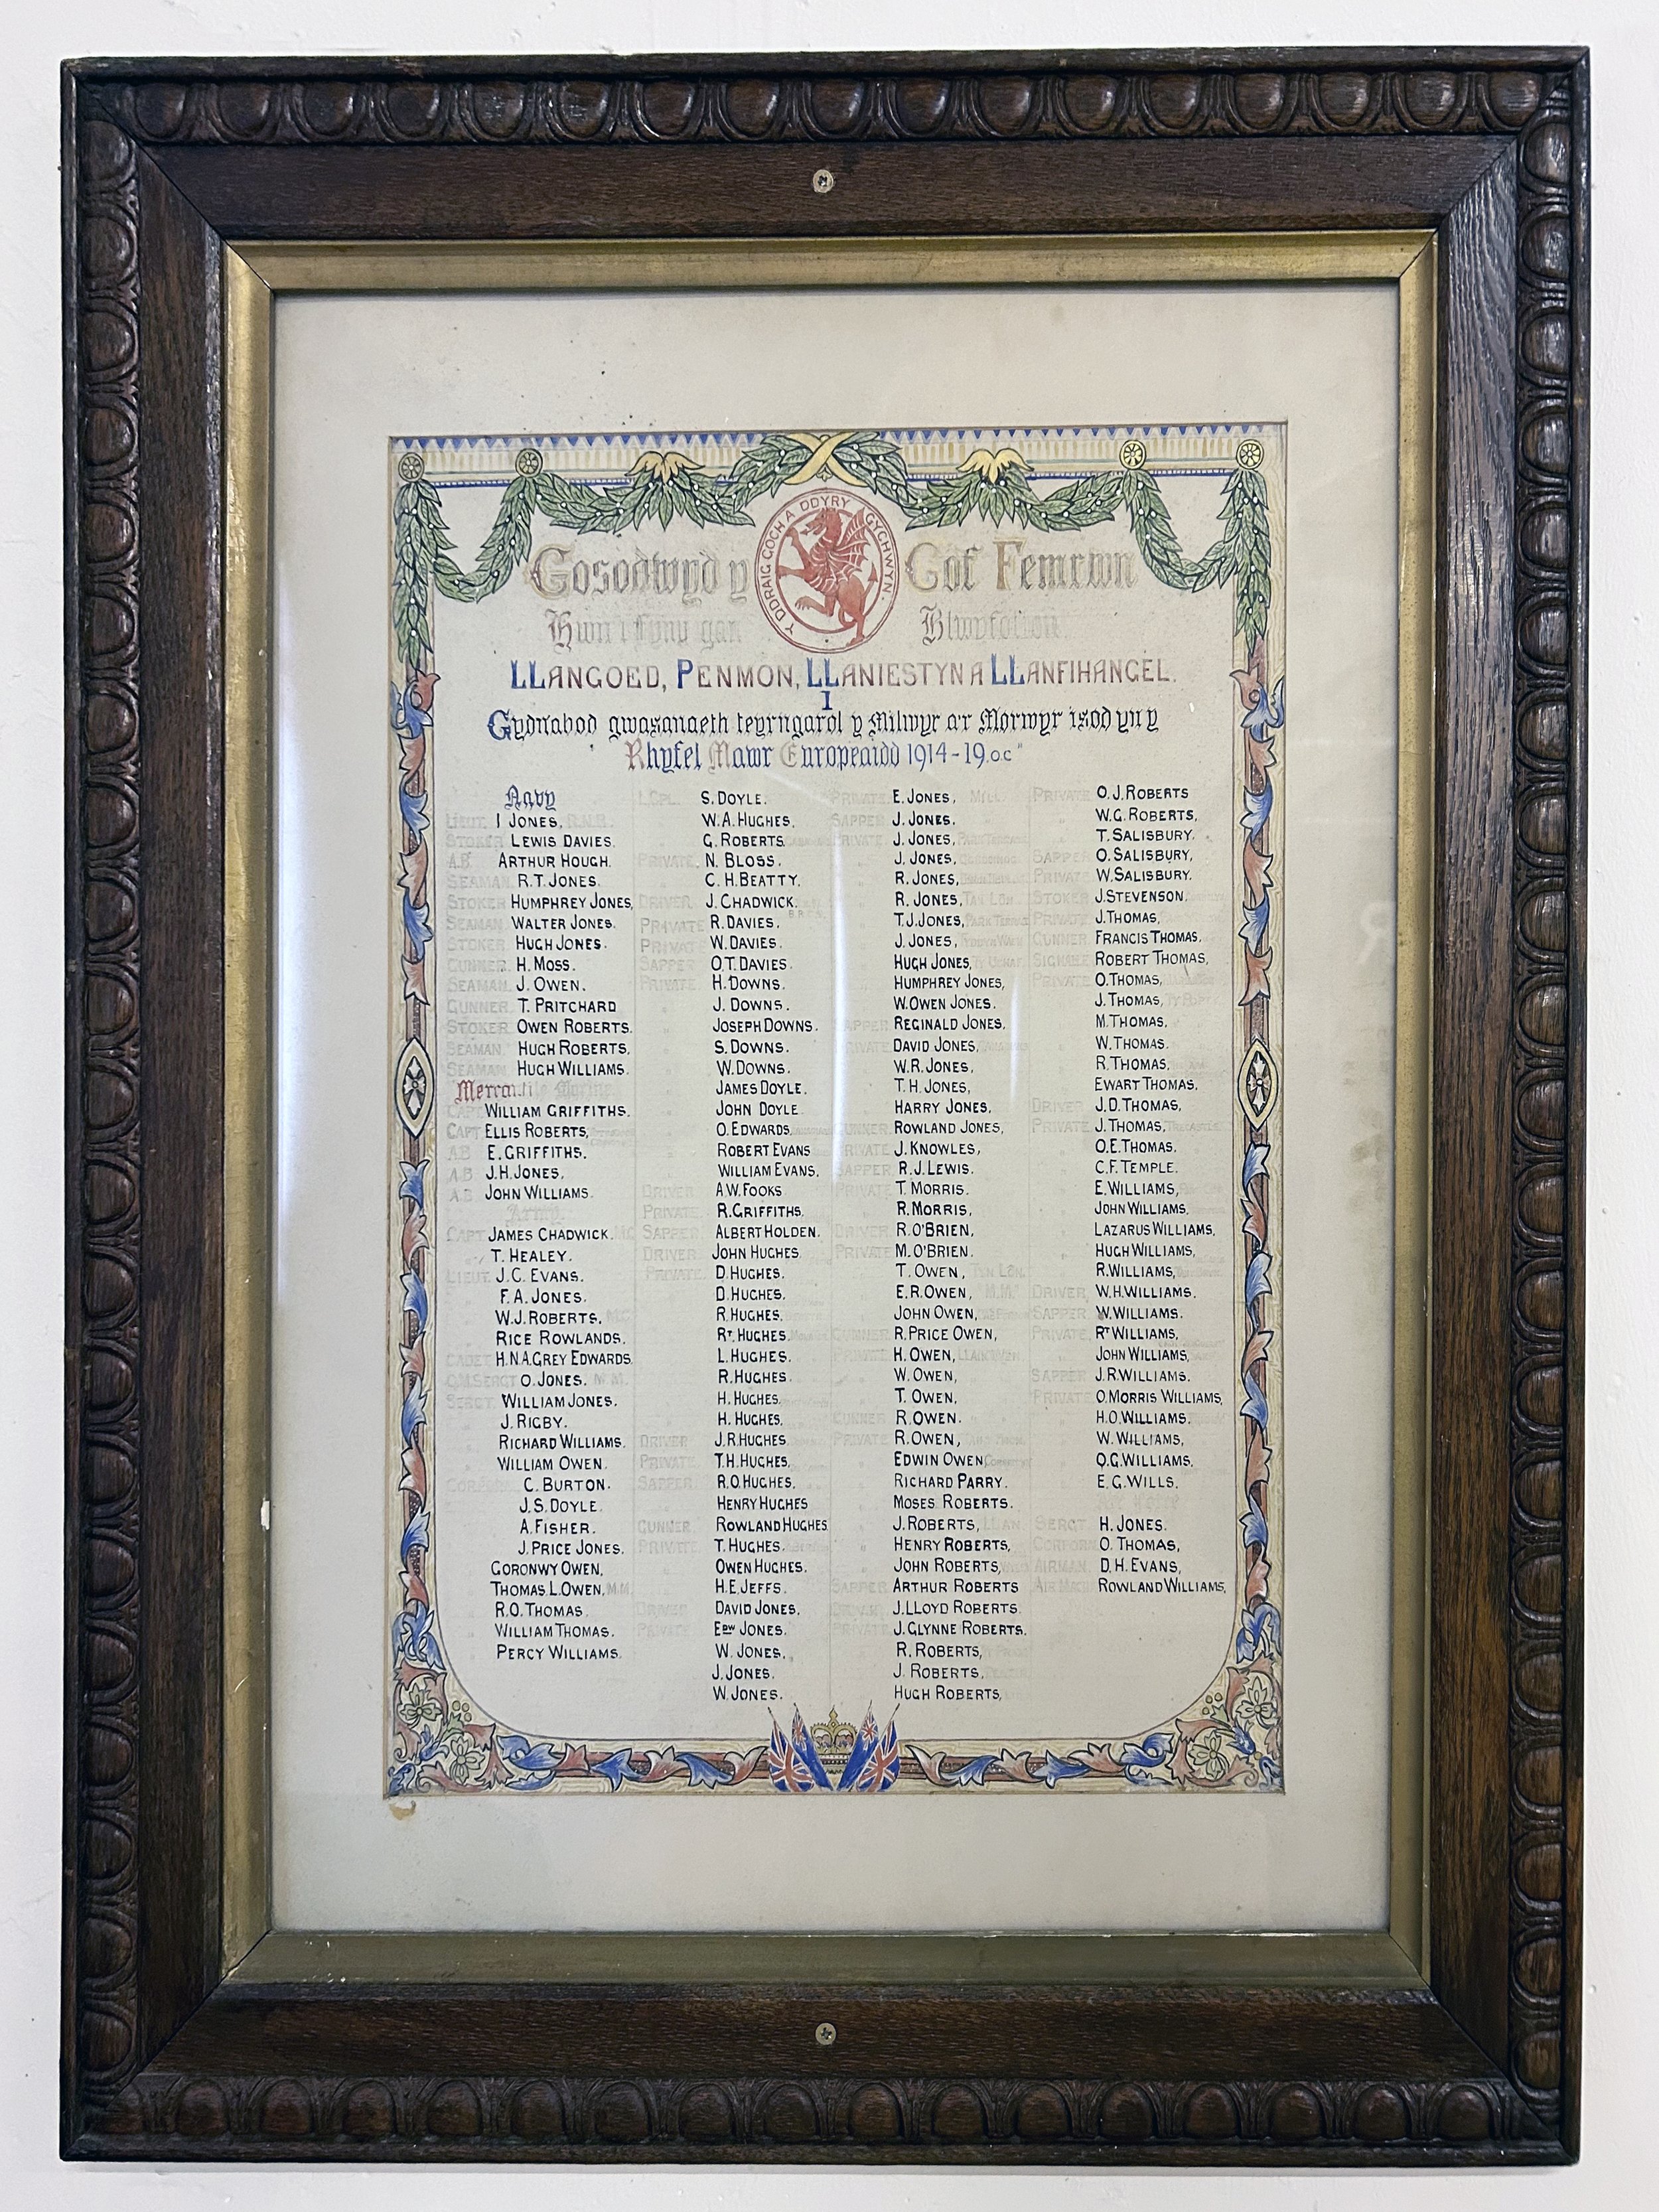 Y DDRAIG GOCH A DDYRY GYCHWYN.
Gosodwyd y Cof Femrwn
Hwn i fynu gan Blwyfolion
LLANGOED, PENMON, LLANIESTYN A LLANFIHANGEL.
I
Gydnabod gwasanaeth teyrngarol y Milwyr a'r Morwyr isod yn y
Rhyfel Mawr Europeaidd 1914-19.O.C"
Navy
LIEUT. I JONES, R.N.R.
STOKER LEWIS DAVIES.
A.B. ARTHUR HOUGH.
SEAMAN R.T. JONES.
STOKER HUMPHREY JONES,
SEAMAN WALTER JONES.
STOKER HUGH JONES.
GUNNER H. MOSS.
SEAMAN J. OWEN.
GUNNER T. PRITCHARD
STOKER OWEN ROBERTS.
SEAMAN HUGH ROBERTS,
SEAMAN HUGH WILLIAMS.
Mercantile Marine
CAPT WILLIAM GRIFFITHS.
CAPT ELLIS ROBERTS,
A.B. E. GRIFFITHS.
A.B. J.H. JONES.
A.B. JOHN WILLIAMS.
Army.
CAPT JAMES CHADWICK. M.C
" T. HEALEY.
LIEUT. J.C. EVANS.
F.A. JONES.
W.J. ROBERTS, M.C.
RICE ROWLANDS.
CADET H.N.A. GREY EDWARDS.
Q.M.SERGT O. JONES. M.M.
SERGT. WILLIAM JONES.
" J. RIGBY.
" RICHARD WILLIAMS.
" WILLIAM OWEN.
C. BURTON.
J.S. DOYLE.
A. FISHER.
J. PRICE JONES.
GORONWY OWEN,
THOMAS. L. OWEN, M.M.
R.O. THOMAS.
WILLIAM THOMAS.
PERCY WILLIAMS.
L.CPL. S. DOYLE.
W.A. HUGHES,
G. ROBERTS
PRIVATE. N. BLOSS.
C. H. BEATTY.
DRIVER J. CHADWICK.
PRIVATE R. DAVIES.
PRIVATE W. DAVIES.
SAPPER O.T. DAVIES.
PRIVATE H. DOWNS.
" J. DOWNS.
JOSEPH DOWNS.
" S. DOWNS.
" W. DOWNS.
JAMES DOYLE.
JOHN DOYLE
O. EDWARDS,
ROBERT EVANS
WILLIAM EVANS,
DRIVER A.W. FOOKS
PRIVATE. R. GRIFFITHS.
SAPPER ALBERT HOLDEN.
DRIVER JOHN HUGHES
PRIVATE. D. HUGHES.
D. HUGHES.
R. HUGHES.
RT. HUGHES.
L. HUGHES.
R. HUGHES.
H. HUGHES,
H. HUGHES.
DRIVER J.R. HUGHES
PRIVATE. T.H. HUGHES,
SAPPER R.O. HUGHES.
HENRY HUGHES
GUNNER ROWLAND HUGHES.
PRIVATE T. HUGHES.
OWEN HUGHES.
H.E. JEFFS.
DRIVER DAVID JONES.
PRIVATE. EDW JONES.
W. JONES.
J. JONES.
W. JONES.
PRIVATE E. JONES, MILL.
SAPPER J. JONES.
PRIVATE J. JONES,
J. JONES,
R. JONES,
R. JONES, TAN LÔN
T.J. JONES,
J. JONES,
HUGH JONES,
HUMPHREY JONES,
W. OWEN JONES.
SAPPER REGINALD JONES.
PRIVATE DAVID JONES,
W.R. JONES,
T.H. JONES,
HARRY JONES,
GUNNER ROWLAND JONES,
PRIVATE J. KNOWLES,
SAPPER R.J. LEWIS.
PRIVATE T. MORRIS.
R. MORRIS,
DRIVER R. O'BRIEN,
PRIVATE M. O'BRIEN.
T. OWEN, TAN LÔN.
E.R. OWEN, M.M.
JOHN OWEN,
GUNNER R. PRICE OWEN,
PRIVATE H. OWEN,
W. OWEN,
T. OWEN,
GUNNER R. OWEN.
PRIVATE R. OWEN,
EDWIN OWEN,
RICHARD PARRY.
MOSES ROBERTS.
J. ROBERTS,
HENRY ROBERTS,
JOHN ROBERTS,
SAPPER ARTHUR ROBERTS
J. LLOYD ROBERTS.
PRIVATE J. GLYNNE ROBERTS.
R. ROBERTS,
J. ROBERTS,
HUGH ROBERTS,
PRIVATE O. J. ROBERTS
W.G. ROBERTS,
T. SALISBURY.
SAPPER O. SALISBURY,
PRIVATE W. SALISBURY.
STOKER J. STEVENSON.
PRIVATE. J. THOMAS,
GUNNER FRANCIS THOMAS,
ROBERT THOMAS,
PRIVATE. O. THOMAS,
J. THOMAS,
M. THOMAS,
W. THOMAS.
R. THOMAS,
EWART THOMAS,
DRIVER J.D. THOMAS,
PRIVATE J. THOMAS,
O.E. THOMAS.
C.F. TEMPLE.
E. WILLIAMS,
JOHN WILLIAMS,
LAZARUS WILLIAMS,
HUGH WILLIAMS,
R. WILLIAMS,
DRIVER W.H. WILLIAMS.
SAPPER W. WILLIAMS.
PRIVATE RT WILLIAMS,
JOHN WILLIAMS,
SAPPER J.R. WILLIAMS.
PRIVATE O. MORRIS WILLIAMS,
H.O. WILLIAMS.
W. WILLIAMS,
O.G. WILLIAMS.
E.G. WILLS.
SERGT. H. JONES.
O. THOMAS,
AIRMAN. D.H. EVANS,
ROWLAND WILLIAMS,